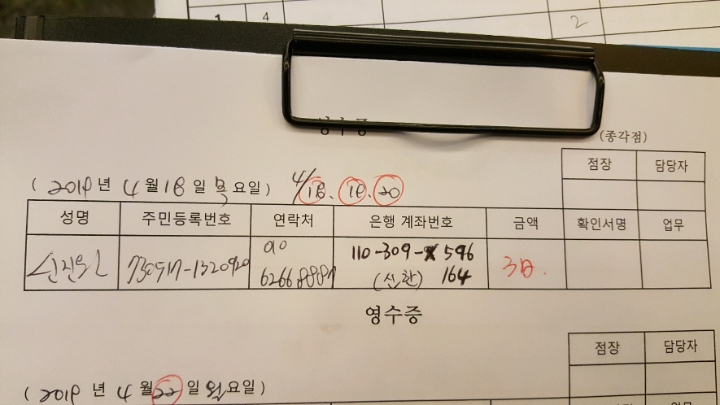 1 4
2
영수증
(종각점)
점장 담당자
( 2019 년 4 월 18 일 목 요일) 4/18. 19. 20
성명 주민등록번호 연락처 은행 계좌번호 금액 확인서명 업무
010 110-309- 596
6266 (신한) 164 3日.
영수증
점장 담당자
( 2019 년 4 월 22 일 월 요일)